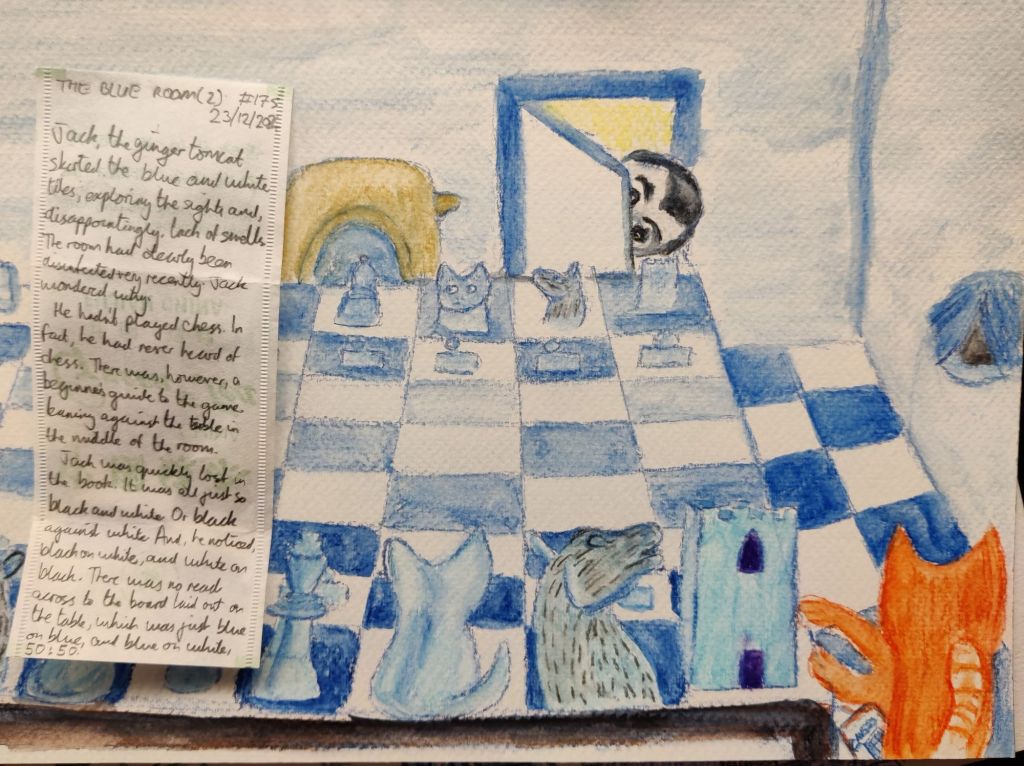 THE BLUE ROOM(2) #175
23/12/202
Jack, the ginger tomcat
skirted the blue and white
tiles, exploring the sights and,
disappointingly, lack of smells
The room had clearly been
disinfected very recently. Jack
wondered why.
He hadn't played chess. In
fact, he had never heard of
chess. There was, however, a
beginner's guide to the game
leaning against the table in
the middle of the room.
Jack was quickly lost in
the book. It was all just so
black and white. Or black
against white. And, he noticed,
black on white, and white on
black. There was no read
across to the board laid out on
the table, which was just blue
on blue, and blue on white,
50:50.